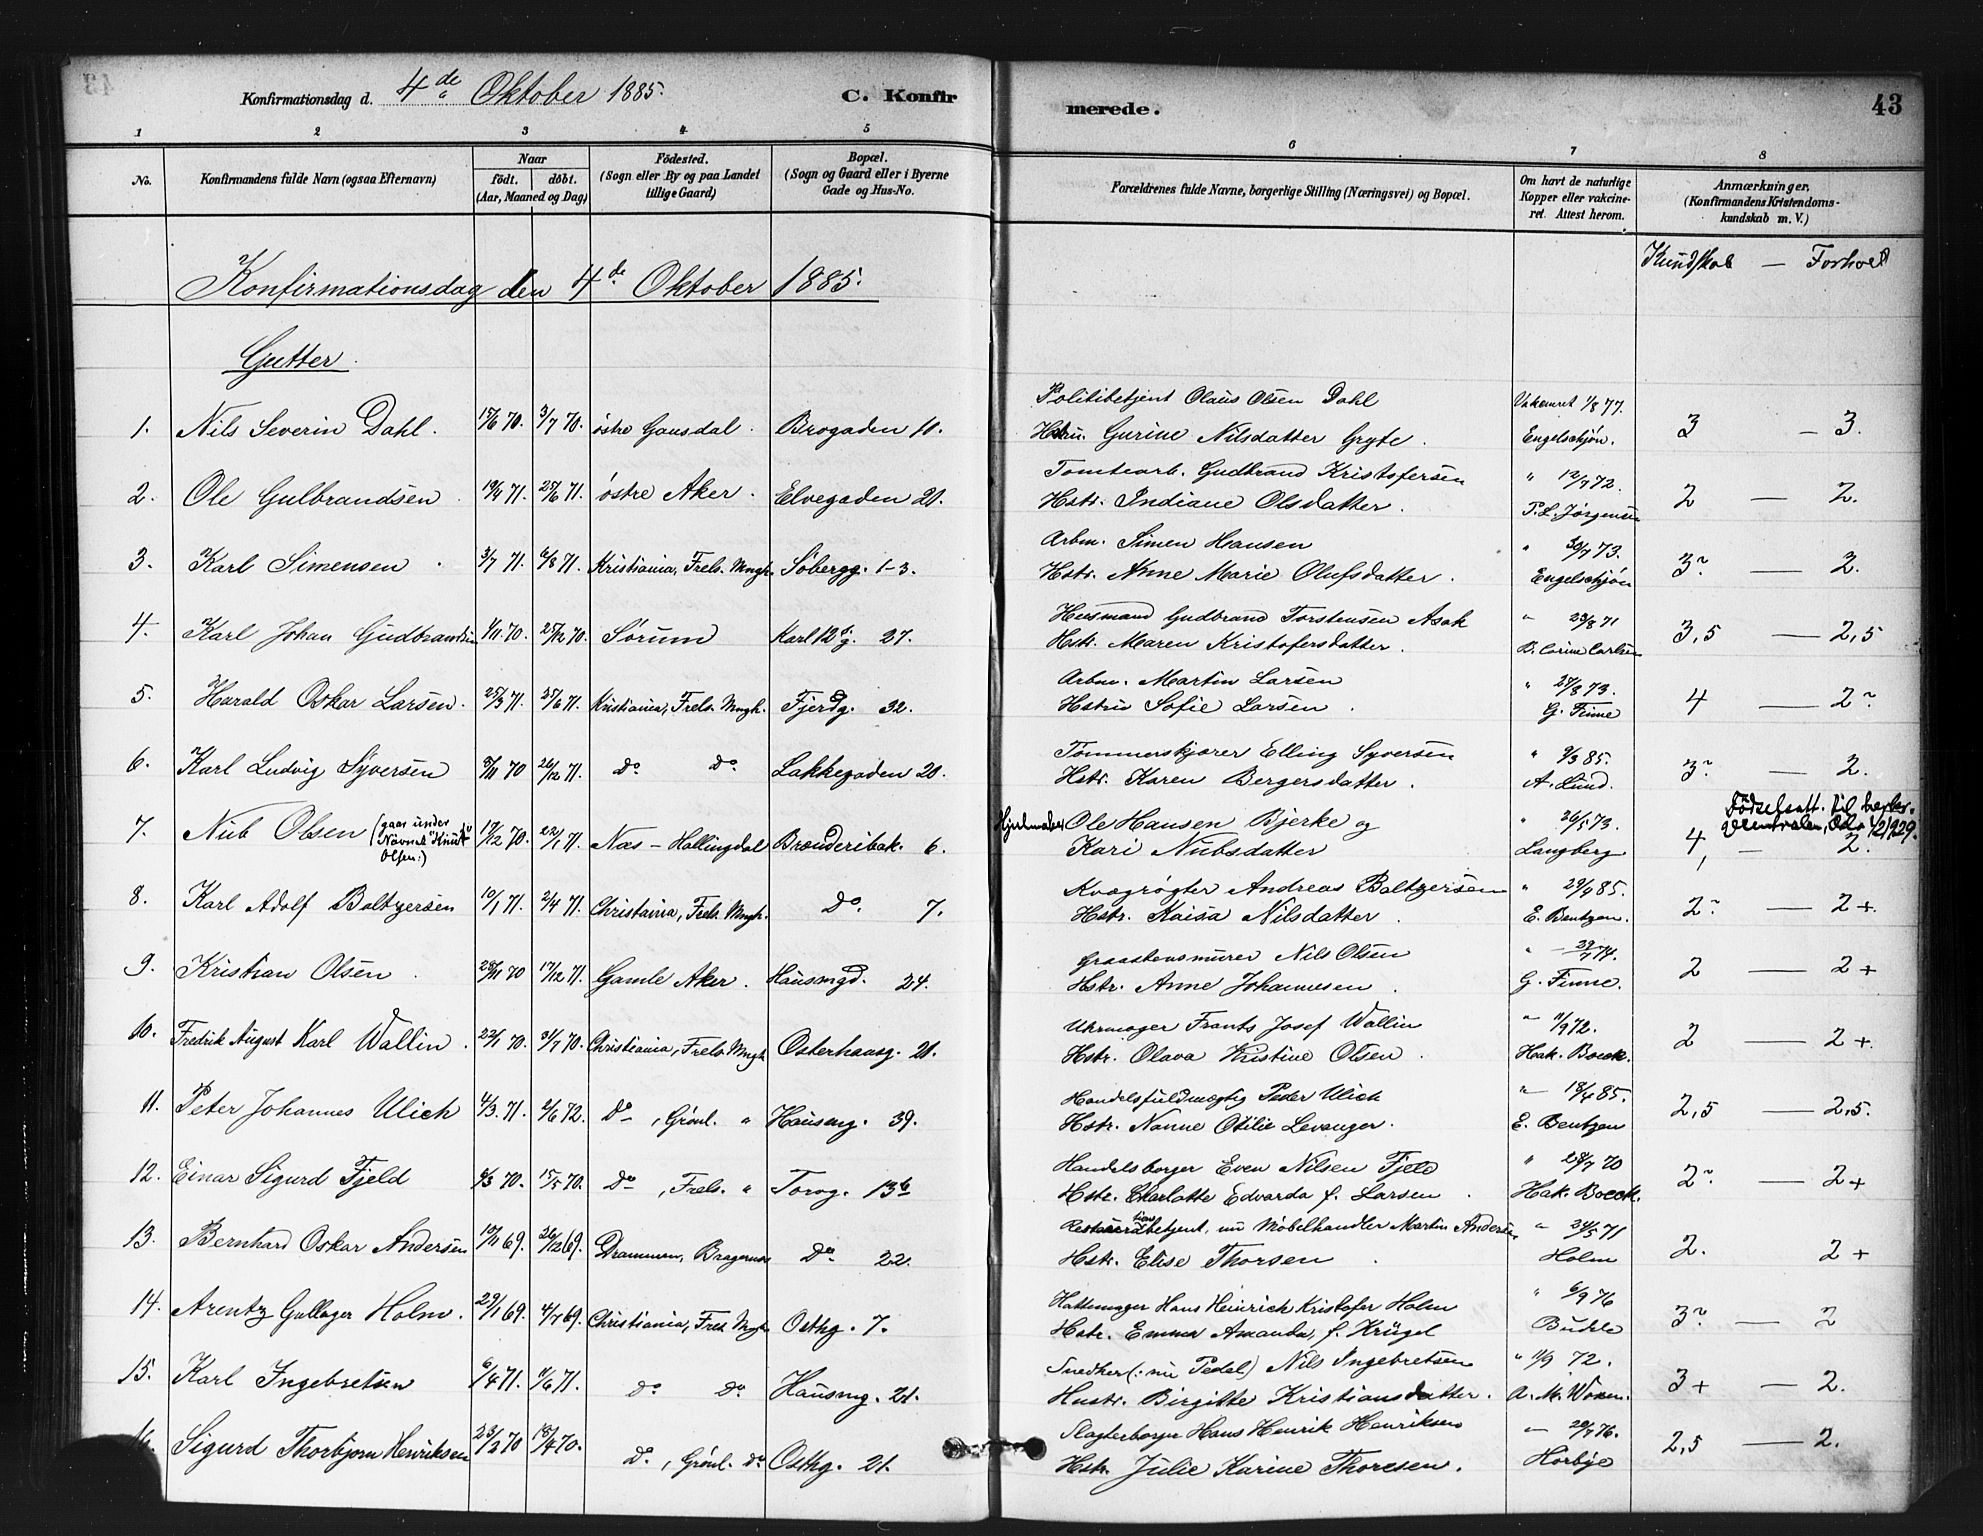 Konfirmationsdag d. 4de Oktober 1885.
C. Konfirmerede.
43
1 2 3 4 5 6 7 8
No.
Konfirmandens fulde Navn (ogsaa Efternavn)
Naar
født. døbt.
(Aar, Maaned og Dag)
Födested.
(Sogn eller By og paa Landet
tillige Gaard)
Bopæl.
(Sogn og Gaard eller i Byerne
Gade og Hus-No.
Forældrenes fulde Navne, borgerlige Stilling (Næringsvei) og Bopæl.
Om havt de naturlige
Kopper eller vakcine-
ret. Attest herom.
Anmærkninger,
(Konfirmandens Kristendoms-
kundskab m. V.)
Kundskab — Forhold
Konfirmationsdag den 4de Oktober 1885.
Gutter.
Politibetjent Olaus Olsen Dahl Vakcineret 1/8 77.
1. Nils Severin Dahl. 15/6 70. 3/7 70. østre Gausdal. Brogaden 10. Hstru. Gurine Nilsdatter Gryte. Engelschjøn. 3 — 3.
Tomtearb. Gudbrand Kristofersen " 12/7 72.
2. Ole Gulbrandsen 19/4 71. 25/6 71. østre Aker. Elvegaden 20. Hstr. Indiane Olsdatter. P. L. Jørgensen 2 — 2.
Arbm. Simen Hansen " 30/7 73.
3. Karl Simensen 3/7 71. 6/8 71. Kristiania, Frels. Mngh. Söbergg. 1-3. Hstr. Anne Marie Olufsdatter. Engelschjön 3 — 2.
Husmand Gudbrand Torstensen Asak " 23/8 71
4. Karl Johan Gudbrandsen 1/11 70. 25/12 70. Sørum Karl 12 g. 27. Hstr. Maren Kristofersdatter. Carine Carlsen 3,5 — 2,5
Arbm. Martin Larsen " 27/8 73.
5. Harald Oskar Larsen. 25/3 71. 25/6 71. Kristiania, Frels. Mngh. Fjerdg. 32. Hstru Sofie Larsen. G. Finne 4 — 2
Tømmerskjærer Elling Syversen " 9/3 85.
6. Karl Ludvig Syversen 3/11 70 26/12 71. Do Do Lakkegaden 20. Hstr. Karen Bergersdatter. A. Lund. 3 — 2.
Hjulmager Ole Hansen Bjerke og " 26/5 73.
Födselsatt. til
7. Nub Olsen (gaar under Navnet "Knut" Olsen:) 17/12 70. 22/1 71. Næs - Hallingdal Brænderibak. 6. Kari Nubsdatter Langberg 4, — 2.
Kvægrøgter Andreas Baltzersen " 29/4 85.
8. Karl Adolf Baltzersen 10/1 71. 2/4 71. Christiania, Frels. Mngh. Do. 7. Hstr. Kaisa Nilsdatter. E. Bentzen. 2 — 2+.
Graastensmurer Nils Olsen " 29/7 74.
9. Kristian Olsen 28/11 70 17/12 71. Gamle Aker. Hausmgd. 24. Hstr. Anne Johannesen. G. Finne. 2 — 2+
Uhrmager Frants Josef Wallin " 11/9 72.
10. Fredrik August Karl Wallin. 22/1 70. 31/7 70. Christiania, Frels. Mngh Osterhausg. 21. Hstr. Olava Kristine Olsen. Hak. Boeck. 2 — 2+.
Handelsfuldmægtig Peder Ulich " 18/4 85.
11. Peter Johannes Ulich 4/3 71. 2/6 72. Do, Grönl. " Hausmg. 39. Hstr. Nanne Otilie Levanger. E. Bentzen 2,5 — 2,5.
Handelsborger Even Nilsen Fjeld " 28/7 70
12. Einar Sigurd Fjeld 6/3 70. 15/5 70. Do, Frels. " Torvg. 13b Hstr. Charlotte Edvarda f. Larsen. Hak. Boeck. 2 — 2+
Restaurationsbetjent, nu Møbelhandler Martin Andersen " 24/5 71
13. Bernhard Oskar Andersen 10/11 69. 26/12 69. Drammen, Bragernæs Do 22. Hstr. Elise Thorsen. Holm 2. 2+
Hattemager Hans Heinrich Kristofer Holm " 6/9 76
14. Arentz Gullager Holm. 29/1 69. 4/7 69. Christiania, Frels Mngh Osthg. 7. Hstr. Emma Amanda, f. Krügel Budde 3 — 2
Snedker (: nu Pedel) Nils Ingebretsen " 11/9 72.
15. Karl Ingebretsen 6/4 71. 11/6 71. Do Do Hausmg. 21. Hustr. Birgitte Kristiansdatter. A. M. Woxen. 3+ — 2.
Slagterborger Hans Henrik Henriksen " 20/7 76.
16. Sigurd Thorbjørn Henriksen 23/2 70 18/4 70. Do, Grönl. Do Osthg. 21. Hstr. Julie Karine Thoresen. Horbye 2,5 — 2.